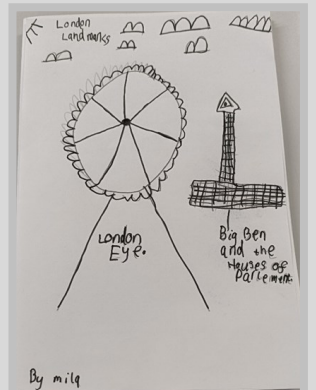 London
Landmarks
London
Eye.
Big Ben
and the
Houses of
Parlement.
By mila